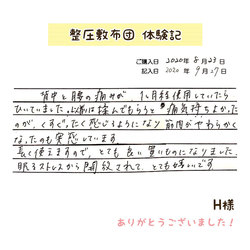 整圧敷布団 体験記
ご購入日 2020年8月23日
記入日 2020年9月27日
背中と腰の痛みが、1ヶ月経使用していたら
ひいていました。以前は揉んでもらうと痛気持ちよかった
のが、くすぐったく感じるようになり筋肉がやわらかく
なったのも実感しています。
長く使えますので、とても良い買いものになりました。
眠るストレスから開放されて、とても嬉しいです。
H様
ありがとうございました!